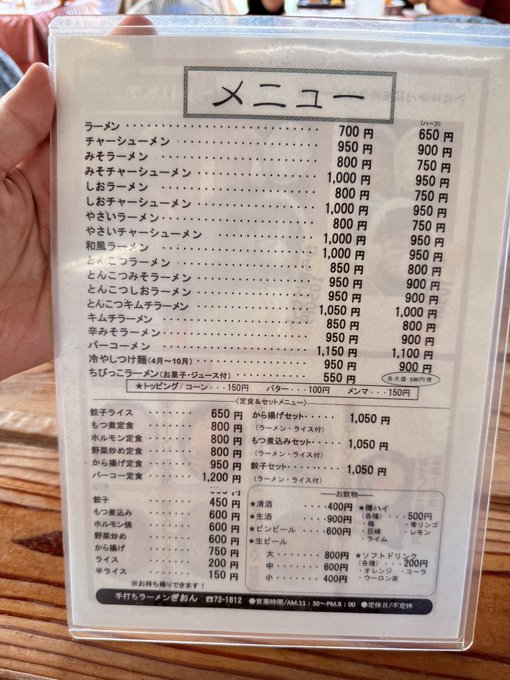 メニュー
(ハーフ)
ラーメン 700円 650円
チャーシューメン 950円 900円
みそラーメン 800円 750円
みそチャーシューメン 1,000円 950円
しおラーメン 800円 750円
しおチャーシューメン 1,000円 950円
やさいラーメン 800円 750円
やさいチャーシューメン 1,000円 950円
和風ラーメン 1,000円 950円
とんこつラーメン 850円 800円
とんこつみそラーメン 950円 900円
とんこつしおラーメン 950円 900円
とんこつキムチラーメン 1,050円 1,000円
キムチラーメン 850円 800円
辛みそラーメン 950円 900円
パーコーメン 1,150円 1,100円
冷やしつけ麺(4月~10月) 950円 900円
ちびっこラーメン(お菓子・ジュース付) 550円
各大盛 100円増
★トッピング/コーン・・・150円 バター・・・100円 メンマ・・・150円
(定食&セットメニュー)
餃子ライス 650円
もつ煮定食 800円
ホルモン定食 800円
野菜炒め定食 800円
から揚げ定食 950円
パーコー定食 1,200円
から揚げセット 1,050円
(ラーメン・ライス付)
もつ煮込みセット 1,050円
(ラーメン・ライス付)
餃子セット 1,050円
(ラーメン・ライス付)
餃子 450円
もつ煮込み 600円
ホルモン焼 600円
野菜炒め 600円
から揚げ 750円
ライス 200円
半ライス 150円
※お持ち帰りできます!
お飲物
★清酒 400円
★生酒 900円
★ビンビール 600円
★生ビール
大 800円
中 600円
小 400円
★樽ハイ
(各種) 500円
・梅 ・青リンゴ
・巨峰 ・レモン
・ライム
★ソフトドリンク
(各種) 200円
・オレンジ ・コーラ
・ウーロン茶
手打ちラーメンぎおん ☎72-1812 ●営業時間/AM.11:30~PM.8:00 ●定休日/不定休